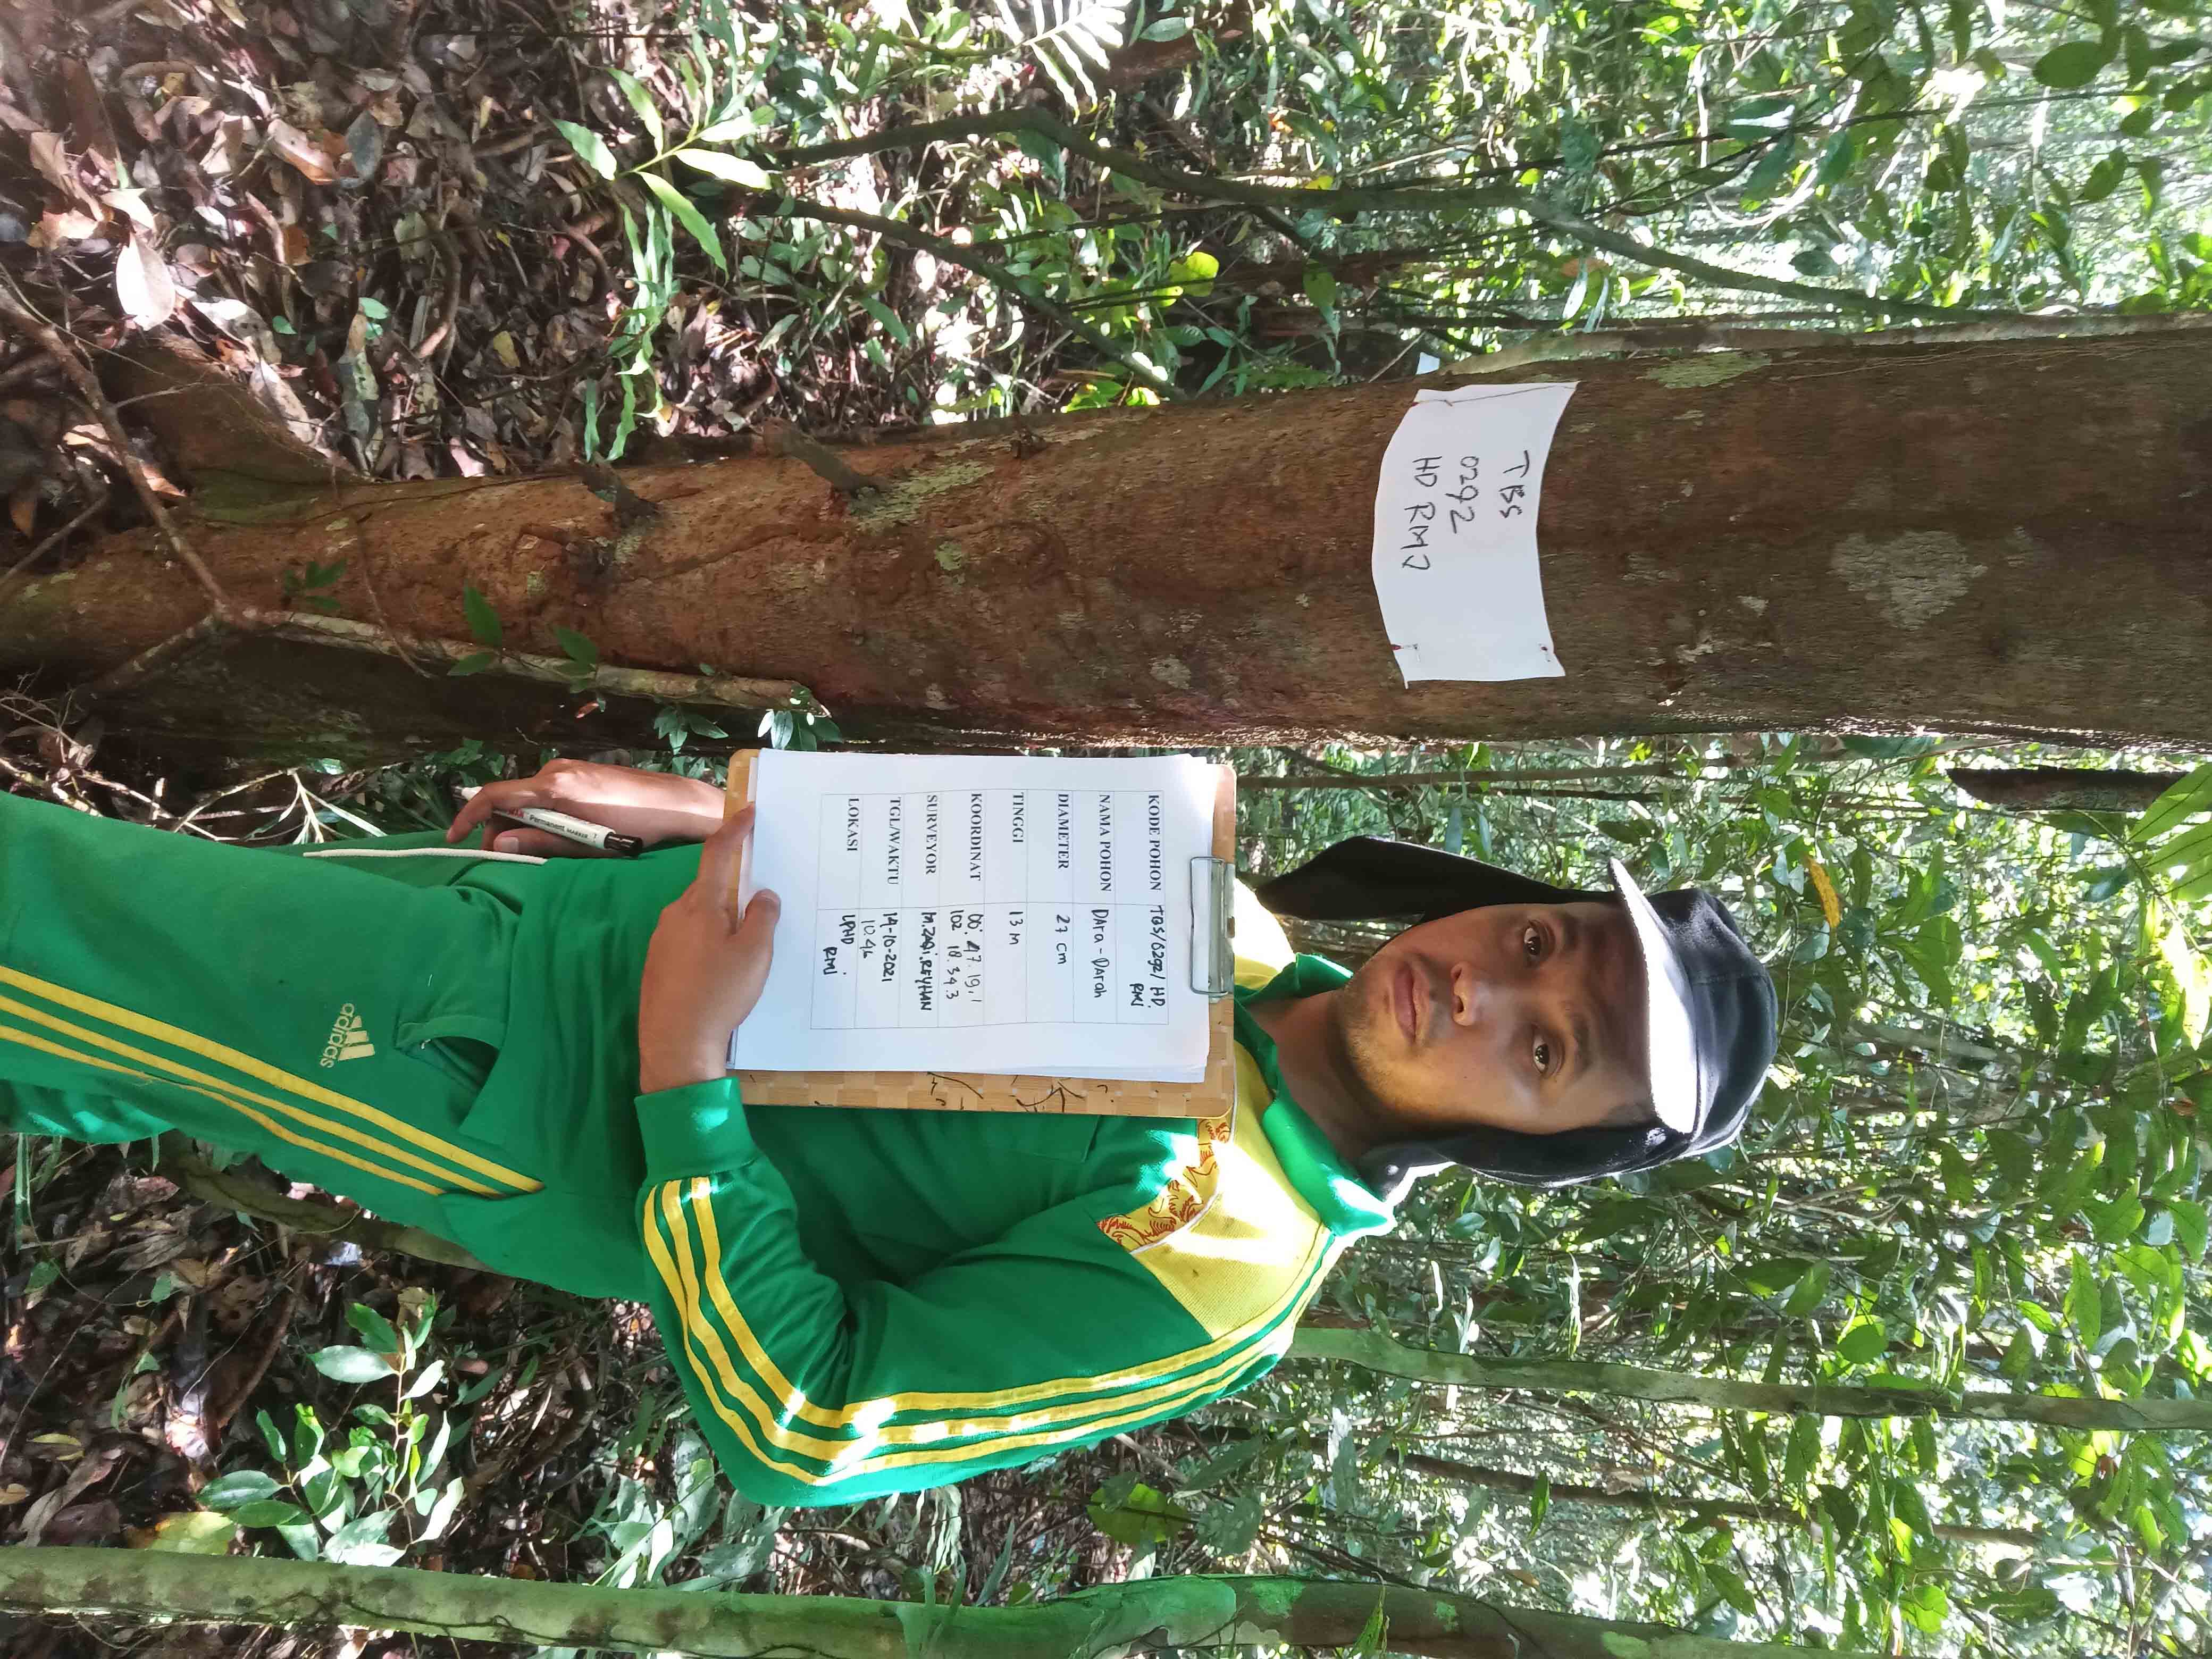 TBS
0292
HD RMJ
KODE POHON TBS/0292/ HD.
RMJ
NAMA POHON DAra-DArah
DIAMETER 27 cm
TINGGI 13 M
KOORDINAT 00°. 47. 19,1
102 18.34.3
SURVEYOR M.ZAQI.REYHAN
TGL/WAKTU 14-10-2021
10.46
LOKASI LPHD
RMJ
adidas